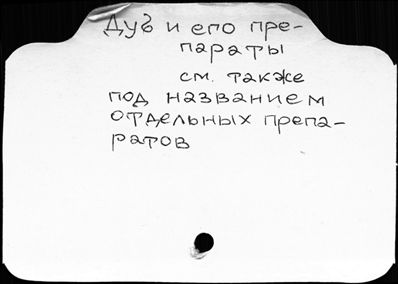 Дуб и его пре-
параты
см. также
под названием
отдельных препа-
ратов